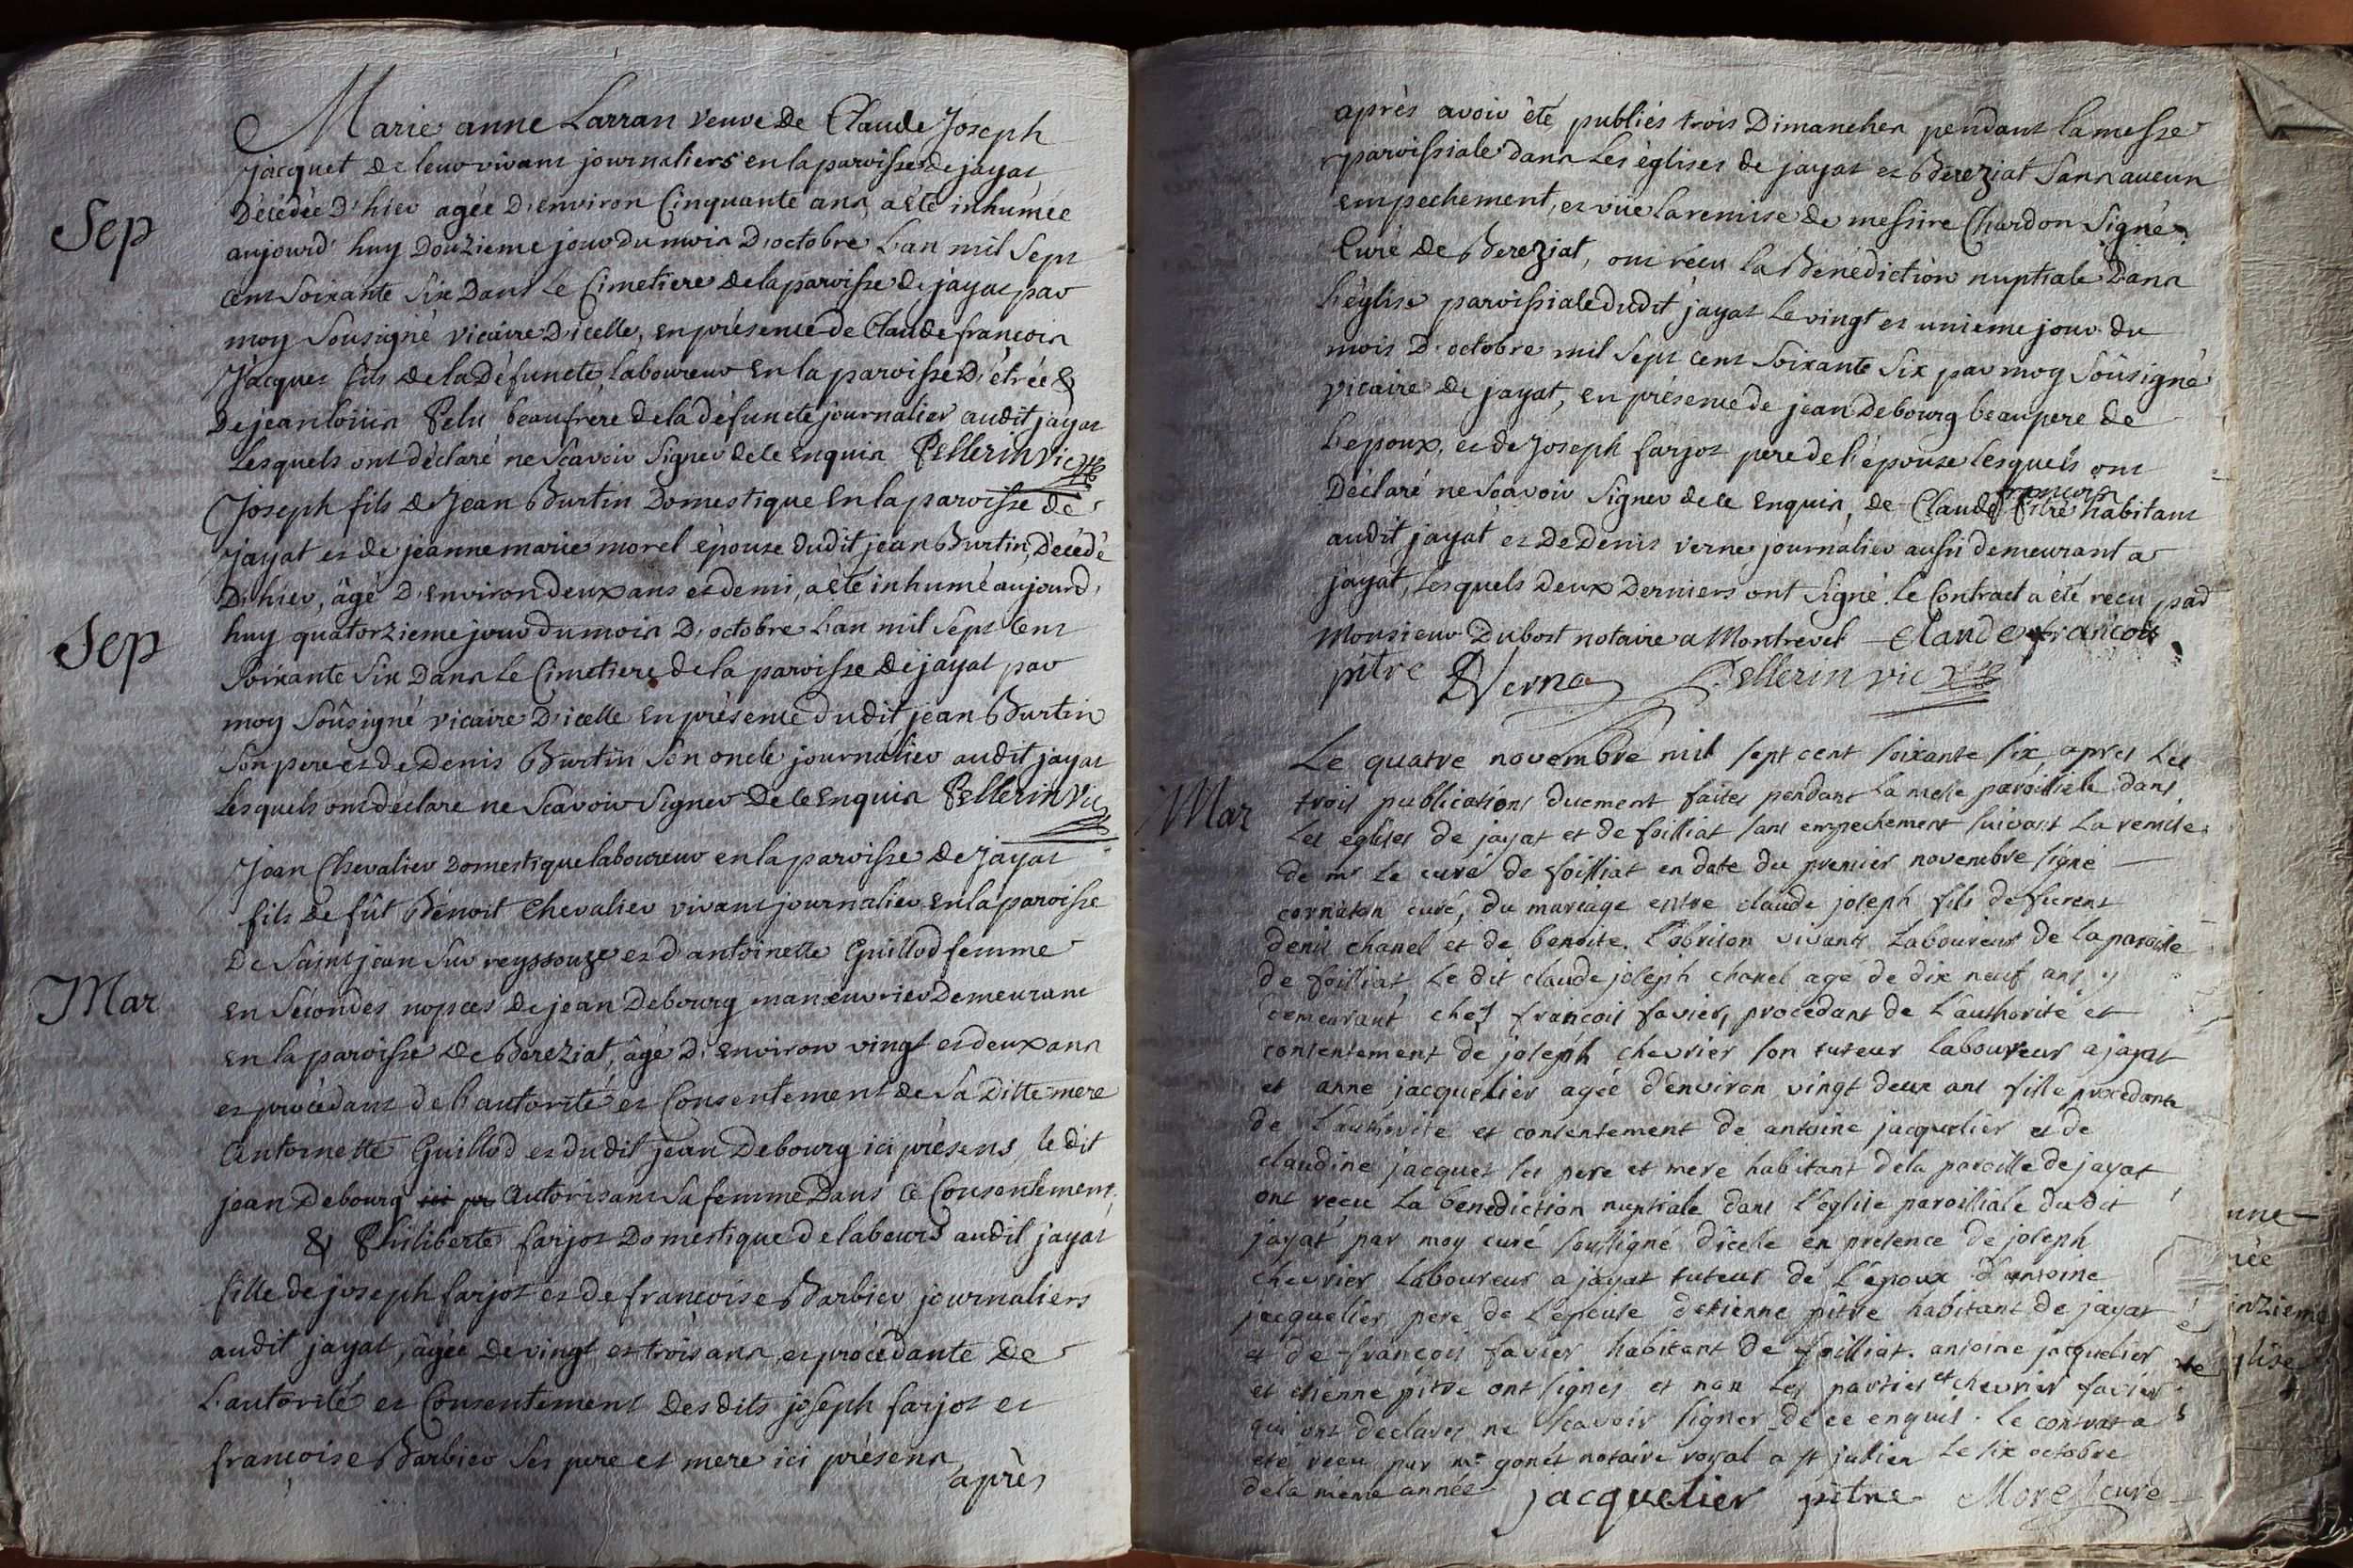 Marie anne Larran veuve de Claude Joseph
Jacquet de leur vivant journaliers en la paroisse de jayat
Décédée d'hier agée d'environ Cinquante ans, a été inhumée
Sep
aujourd'huy douzieme jour du mois d'octobre L'an mil Sept
cent Soixante Six Dans le Cimetiere de la paroisse de jayat par
moy Sousigné vicaire d'icelle, en présence de Claude françois
Jacquet fils de la Défuncte, laboureur en la paroisse d'étrée &
De jean loüis Pelu beaufrère de la défuncte journalier audit jayat
Lesquels ont déclaré ne Scavoir Signer de ce enquis Pellerin Vic
Joseph fils de Jean Burtin Domestique en la paroisse de
jayat et de jeanne marie morel épouse dudit jean Burtin, Décédé
D'hier, âgé d'environ deux ans et demi, a été inhumé aujourd'
Sep
huy quatorzieme jour du mois D'octobre L'an mil Sept Cent
Soixante Six Dans Le Cimetiere de la paroisse de jayat par
moy Soûsigné vicaire D'icelle en présence dudit jean Burtin
Son pere et de Denis Burtin Son oncle journalier audit jayat
Lesquels ont déclaré ne Scavoir Signer De ce enquis Pellerin Vic
Jean Chevalier Domestique laboureur en la paroisse de Jayat
fils de fût Bénoit Chevalier vivant journalier en la paroisse
De Saint jean Sur reyssouze et d'antoinette Guillod femme
Mar
en Sécondes nopces de jean Debourg manœuvrier Demeurant
en la paroisse de Bereziat, âgé d'environ vingt et deux ans
et procédant de l'autorité et Consentement de Sa Ditte mere
Antoinette Guillod et dudit jean Debourg ici présens, le dit
jean Debourg ici pr autorisant Sa femme Dans ce Consentement
& Philiberte farjot Domestique de labeurs audit jayat
fille de joseph farjot et de françoise Barbier journaliers
audit jayat, âgée de vingt et trois ans, et procédante de
L'autorité et Consentement desdits joseph farjot et
françoise Barbier Ses pere et mere ici présens
après
après avoir été publiés trois Dimanches pendant la messe
paroissiale dans Les églises de jayat et Bereziat Sans aucun
empechement, et vüe la remise de messire Chardon Signé
Curé de Bereziat, ont réçu la Bénédiction nuptiale Dans
L'église paroissiale dudit jayat Le vingt et unieme jour du
mois d'octobre mil Sept cent Soixante Six par moy Soûsigné
vicaire de jayat, en présence de jean Debourg beaupere de
L'epoux, et de Joseph farjot pere de l'épouse lesquels ont
Déclaré ne Scavoir Signer de ce enquis, de Claude françois pitre habitant
audit jayat et de Denis verne journalier aussi demeurant a
jayat, Lesquels deux Derniers ont Signé. Le Contract a été reçu par
Monsieur Dubost notaire a Montrevel Claude françois
pitre D Verne Pellerin vic
Le quatre novembre mil sept cent soixante six apres Les
Mar
trois publications duement faites pendant La messe paroissiale dans
Les eglises de jayat et de foissiat sans empechement suivant La remise
de mr Le curé de foissiat en date du premier novembre signé
cornaton curé, du mariage entre claude joseph fils de furent
denis chanel et de benoite vivants Laboureurs de La paroisse
de foissiat Le dit claude joseph chanel agé de dix neuf ans
demeurant chez françois favier, procedant de L'authorité et
consentement de joseph chevrier son tuteur laboureur a jayat
et anne jacquelier agée d'environ vingt deux ans fille procedante
de L'authorité et consentement de antoine jacquelier et de
claudine jacquet ses pere et mere habitant de la paroisse de jayat
ont recu La benediction nuptiale dans l'église paroissiale du dit
jayat par moy curé soussigné d'icelle en presence de joseph
chevrier Laboureur a jayat tuteur de L'époux d'antoine
jacquelier pere de L'epouse d'etienne pitre habitant de jayat
et de françois favier habitant de foissiat. antoine jacquelier
et etienne pitre ont signés et non Les parties et chevrier favier
qui ont declarés ne scavoir signer de ce enquis. le contrat a
eté recu par mr gonet notaire royal a st julien Le six octobre
de la même année jacquelier pitre Morel curé